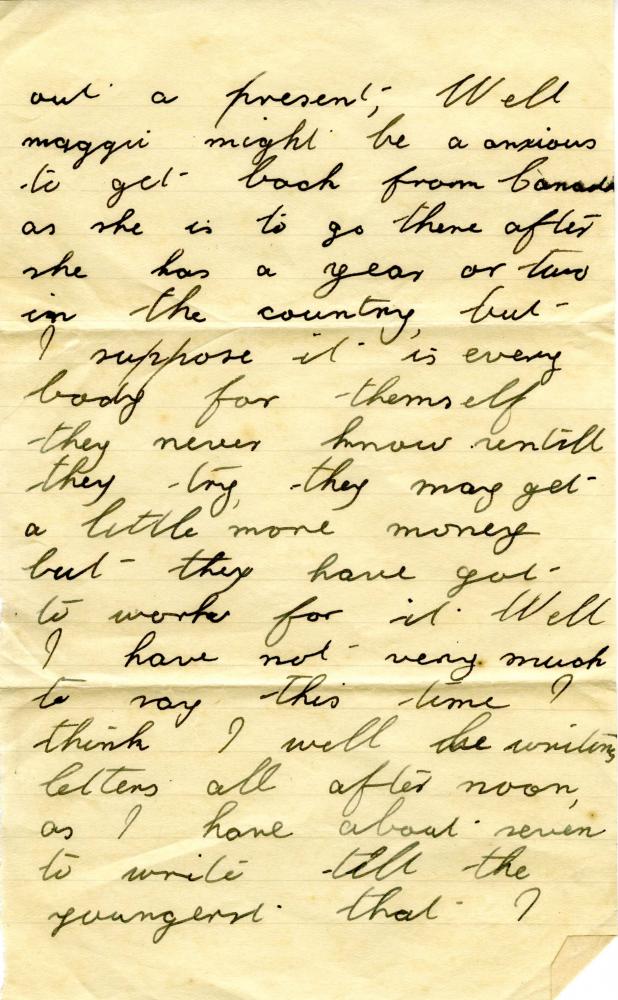 out a present, Well
maggie might be a anxious
to get back from Canada
as she is to go there after
she has a year or two
in the country, but
I suppose it is every
body for themself
they never know untill
they try, they may get
a little more money
but they have got
to work for it Well
I have not very much
to say this time I
think I well be writing
letters all after noon,
as I have about seven
to write tell the
youngerst that I